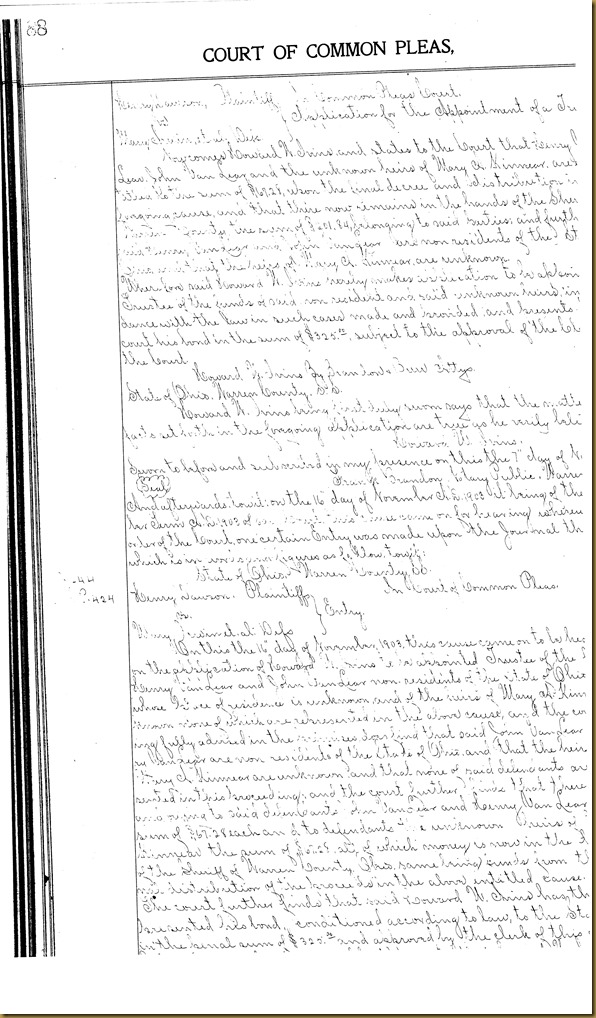 88
COURT OF COMMON PLEAS,
Henry Lawson, Plaintiff In Common Pleas Court
vs Application for the Appointment of a Tru
Mary Irwin et al, Defs
Now comes Howard W. Ivins and states to the Court that Henry
Lear, John Van Lear and the unknown heirs of Mary A. Kinnear, are
titled to the sum of upon the final decree and distribution in
foregoing cause, and that there now remains in the hands of the Sher
County the sum of belonging to said parties; and furth
Henry VanLear and John VanLear are non residents of the St
and that the heirs of Mary A. Kinnear, are unknown.
Wherefore said Howard W. Ivins hereby makes application to be appoin
Trustee of the funds of said non resident and said unknown heirs, in
dance with the law in such cases made and provided and presents
court his bond in the sum of $325.00 subject to the approval of the Cl
the Court
Howard W. Ivins By Brandon & Attys.
State of Ohio, Warren County, SS.
Howard W. Ivins being first duly sworn says that the matte
facts set forth in the foregoing application are true as he verily beli
Howard W. Ivins.
Sworn to before and subscribed in my presence on this the 7" day of N
Seal Frank Brandon, Notary Public, Warren
And afterwards towit: on the 16 day of November A.D. 1903 it being of the
ber Term A.D. 1903 of this cause came on for hearing whereu
order of the Court, one certain Entry was made upon the Journal th
which is in words and figures as follow towit:
State of Ohio, Warren County, SS.
J-44
P. 424
Henry Lawson, Plaintiff In Court of Common Pleas.
vs. Entry.
Mary Irwin et al. Defs
On this the 16 day of November, 1903, this cause came on to be hear
on the application of Howard W. Ivins to be appointed Trustee of the
Henry VanLear and John VanLear non-residents of the State of Ohio
whose place of residence is unknown, and of the heirs of Mary A. Kinn
known none of which are represented in the above cause, and the cou
ing fully advised in the premises does find that said John VanLear
ry VanLear are non residents of the State of Ohio and that the heir
Mary A. Kinnear are unknown and that none of said defendants are
sented in this proceeding; and the court further finds that there
and owing to said defendants John VanLear and Henry Van Lear
sum of $67.28 each and to defendants the unknown heirs of
Kinnear the sum of of which money is now in the h
of the Sheriff of Warren County, Ohio, same being funds from th
nal distribution of the proceeds in the above entitled cause.
The court further finds that said Howard W. Ivins has th
presented his bond, conditioned according to law, to the Sta
in the penal sum of $325.00 and approved by the clerk of this